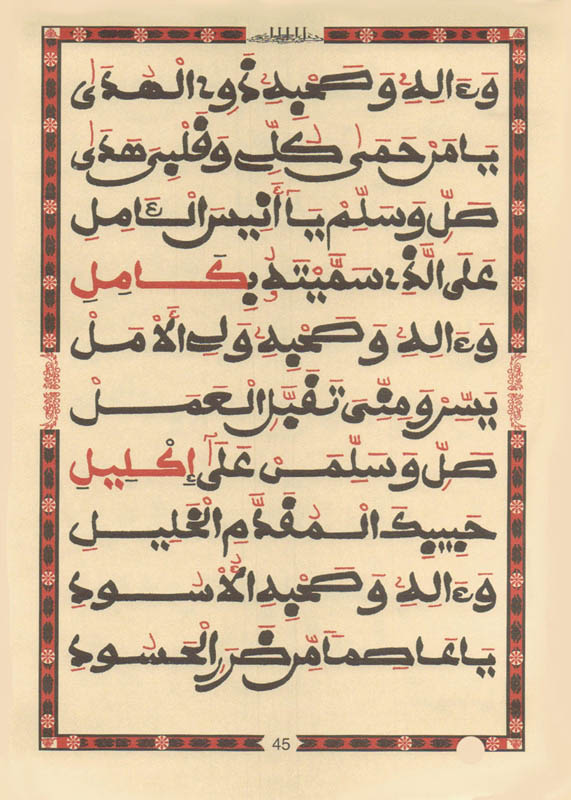 وَءَالِهِ وَصَحْبِهِ ذَوِي الْهُدَى
يَا مَنْ حَمَى كُلِّي وَقَلْبِي هَدَى
صَلِّ وَسَلِّمْ يَا أَنِيسَ الْءَامِلِ
عَلَى الَّذِي سَمَّيْتَهُ بِكَامِلِ
وَءَالِهِ وَصَحْبِهِ وَلِي الْأَمَلْ
يَسِّرْ وَمِنِّي تَقَبَّلِ الْعَمَلْ
صَلِّ وَسَلِّمَنْ عَلَى إِكْلِيلِ
حَبِيبِكَ الْمُقَدَّمِ الْخَلِيلِ
وَءَالِهِ وَصَحْبِهِ الْأُسُودِ
يَا عَاصِمًا مِّن ضَرَرِ الْحَسُودِ
45